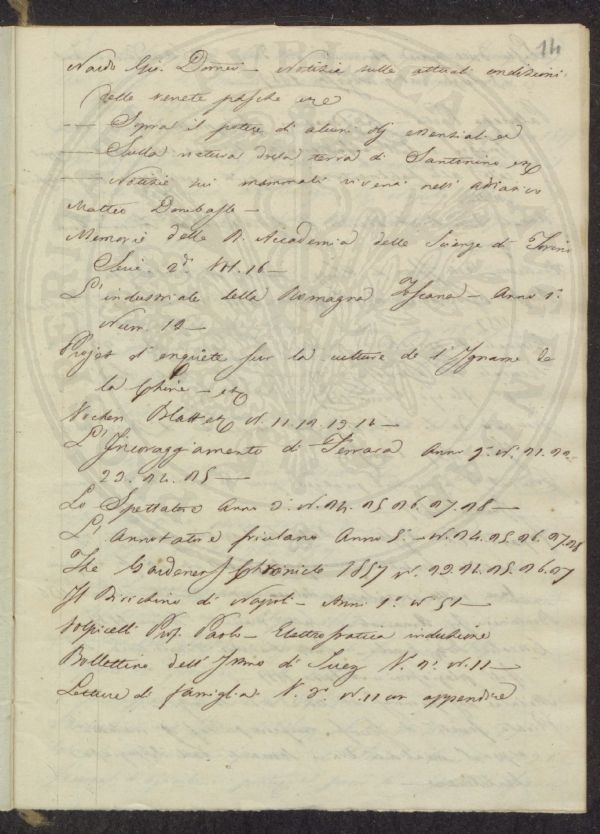 14
Nardo Gio. Domco — Notizie sulle attuali condizioni
delle venete pesche ecc
— Sopra il potere di alcuni olj essenziali ec
— Sulla natura della terra di Santorino ec
— Notizie sui mammali viventi nell' adriatico
Matteo Dombasle —
Memorie della R. Accademia delle Scienze di Torino
Serie 2a Vol. 16 —
L' industriale della Romagna Toscana — Anno 1o
Num. 12 —
Projet d' enquête sur la culture de l' Igname de
la Chine — etc
Wochen Blatt etc N. 11. 12. 13. 14 —
L' Incoraggiamento di Ferrara Anno N. 21. 22
23. 24. 25 —
Lo Spettatore Anno 3o N. 24. 25 26. 27. 28 —
L' Annotatore friulano Anno 5o — N. 24. 25. 26. 27. 28
The Gardeners Chronicle 1857 N. 23. 24. 25. 26. 27
Il Birichino di Napoli — Anno 1o N 51 —
Volpicelli Prof. Paolo — Elettrostatica induzione
Bollettino dell' Istmo di Suez N. 11 —
Letture di famiglia N. 11 con appendice